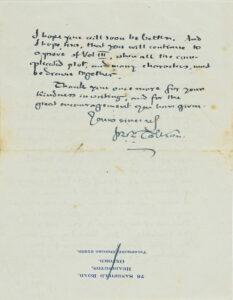 I hope you will soon be better. And
I hope, too, that you will continue to
approve of Vol III, when all the com-
plicated plot, and many characters, must
be drawn together.
Thank you once more for your
kindness in writing, and for the
great encouragement you have given.
Yours sincerely
JRR Tolkien
76 SANDFIELD ROAD,
HEADINGTON,
OXFORD.